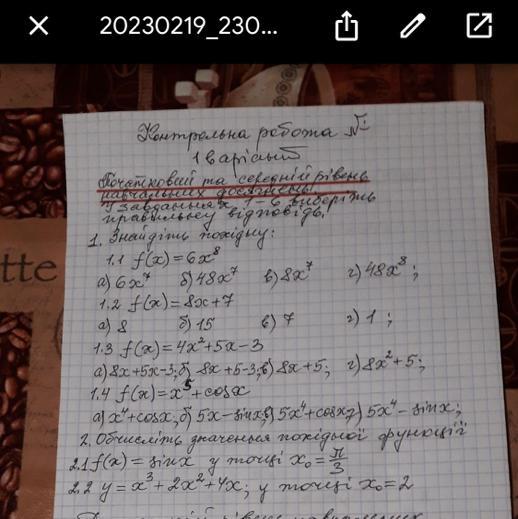 20230219_230...
Контрольна робота №
1 варіант
Початковий та середній рівень
навчальних досягнень
У завданнях 1-6 виберіть
правильну відповідь!
tte
1. Знайдіть похідну:
1.1 f(x)=6x⁸
а) 6x⁷ б) 48x⁷ в) 8x⁷ г) 48x⁸;
1.2 f(x)=8x+7
а) 8 б) 15 в) 7 г) 1;
1.3 f(x)=4x²+5x-3
а) 8x+5x-3; б) 8x+5-3; в) 8x+5; г) 8x²+5;
1.4 f(x)=x⁵+cosx
а) x⁴+cosx; б) 5x-sinx; в) 5x⁴+cosx; г) 5x⁴-sinx;
2. Обчисліть значення похідної функції
2.1 f(x)=sinx у точці x₀=π/3
2.2 y=x³+2x²+4x; у точці x₀=2